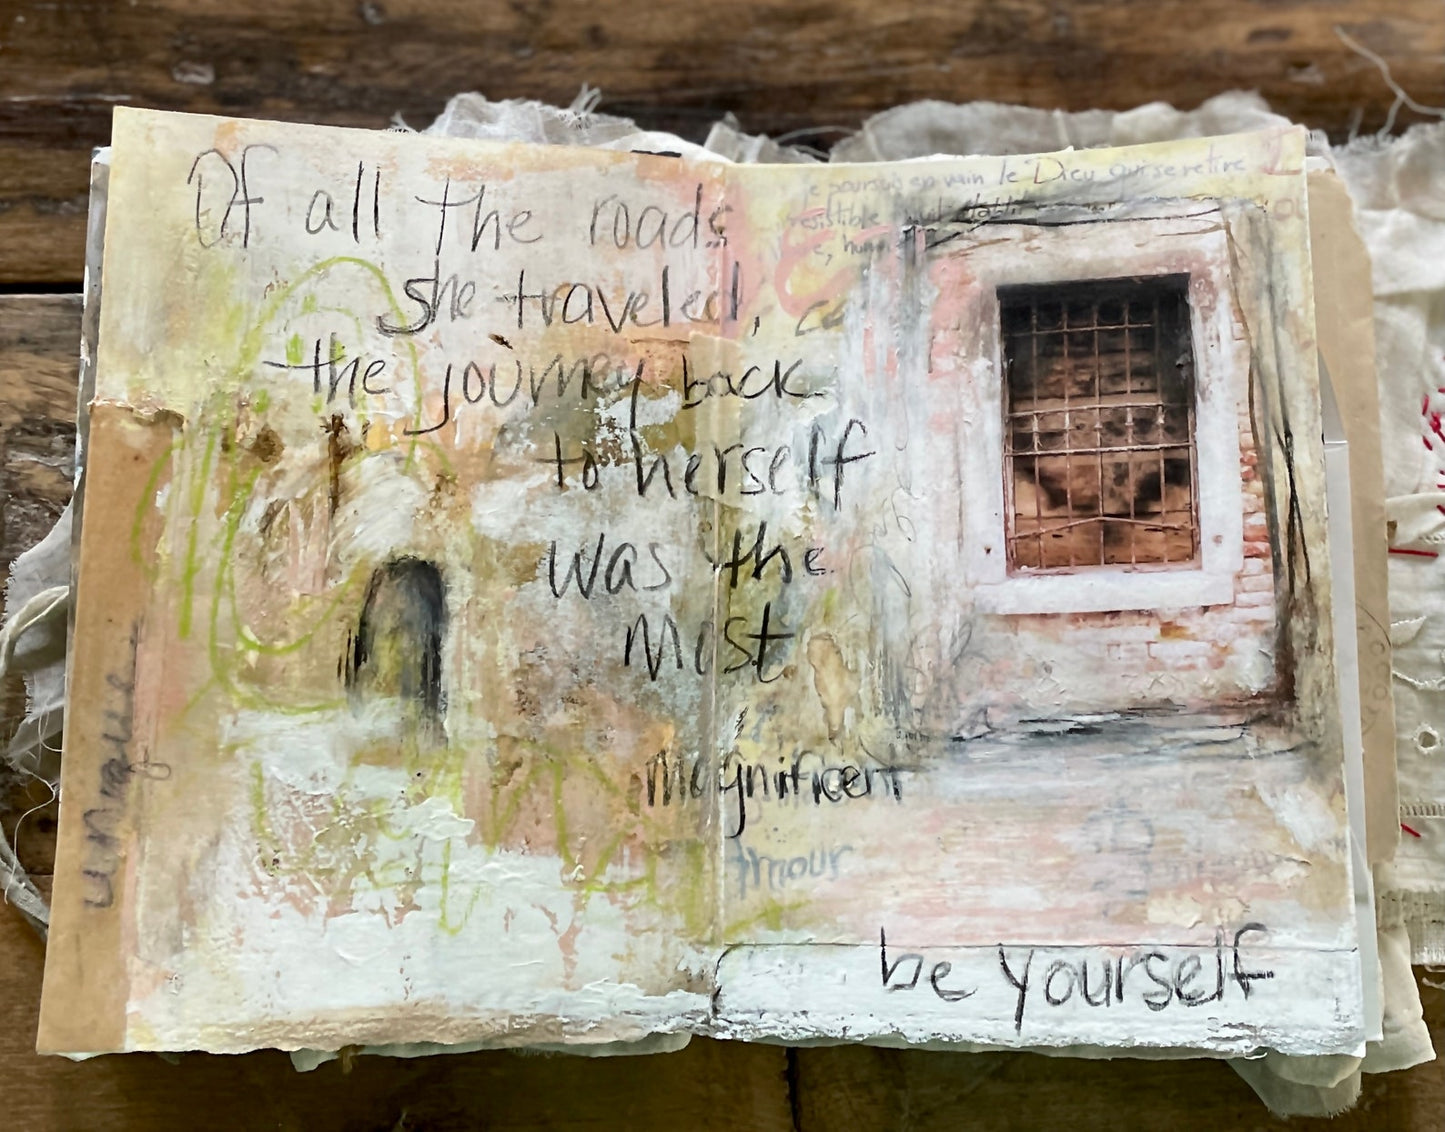 Of all the roads
she traveled,
the journey back
to herself
was the
Most
Magnificent
amour
be yourself
unique
Je poursuis en vain le Dieu qui se retire
irrésistible Nuit établit
e, hum